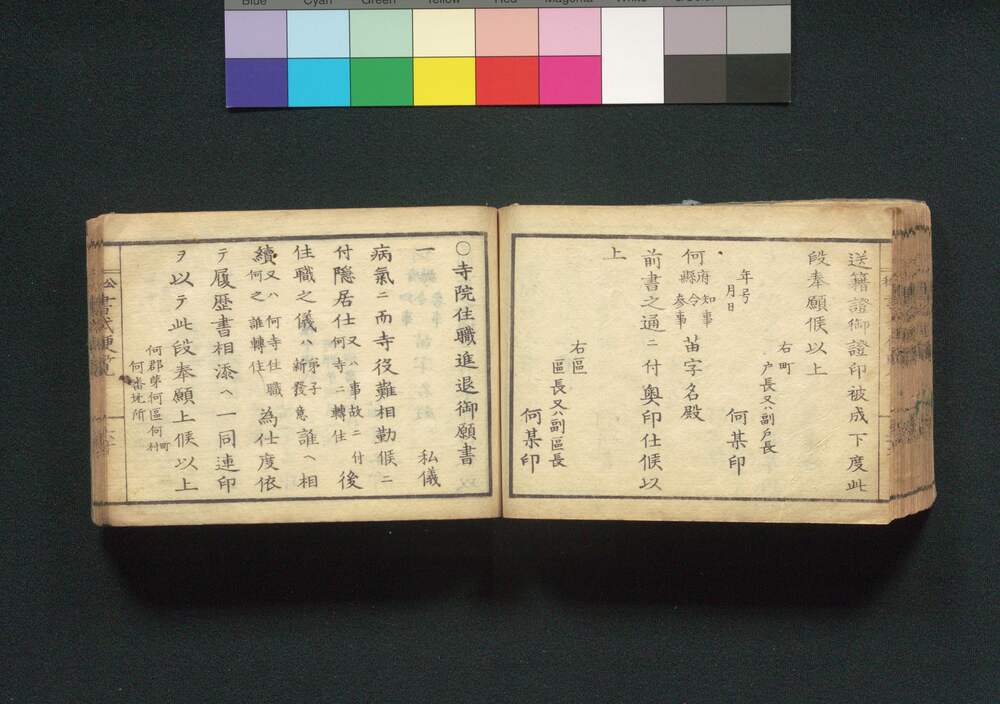 Blue Cyan Green Yellow Red Magenta White Black
送籍證御證印被成下度此
段奉願候以上
右町
戸長又ハ副戸長
何某印
年号
月日
何府知事
縣令
参事
苗字名殿
前書之通ニ付奥印仕候以
上
右區
區長又ハ副區長
何某印
〇寺院住職進退御願書
一 私儀
病氣ニ而寺役難相勤候ニ
付隠居仕又ハ事故ニ付何寺ニ轉住後
住職之儀ハ弟子新發意誰ヘ相
續又ハ何寺住職何之誰轉住為仕度依
テ履歴書相添ヘ一同連印
ヲ以テ此段奉願上候以上
何郡第何區何町村
何番地所